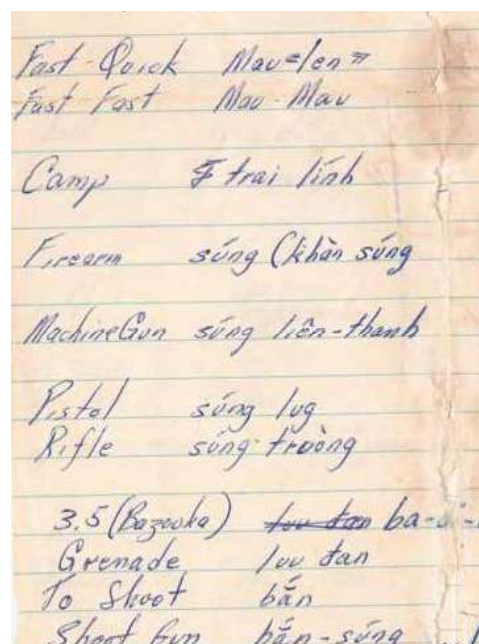 Fast-Quick Mau=len=
Fast Fast Mau-Mau
Camp trai lính
Firearm súng (khàn súng
MachineGun súng liên-thanh
Pistol súng lug
Rifle súng trường
3.5 (Bazooka) ba-
Grenade luu đan
To Shoot bắn
Shoot Gun bắn-súng